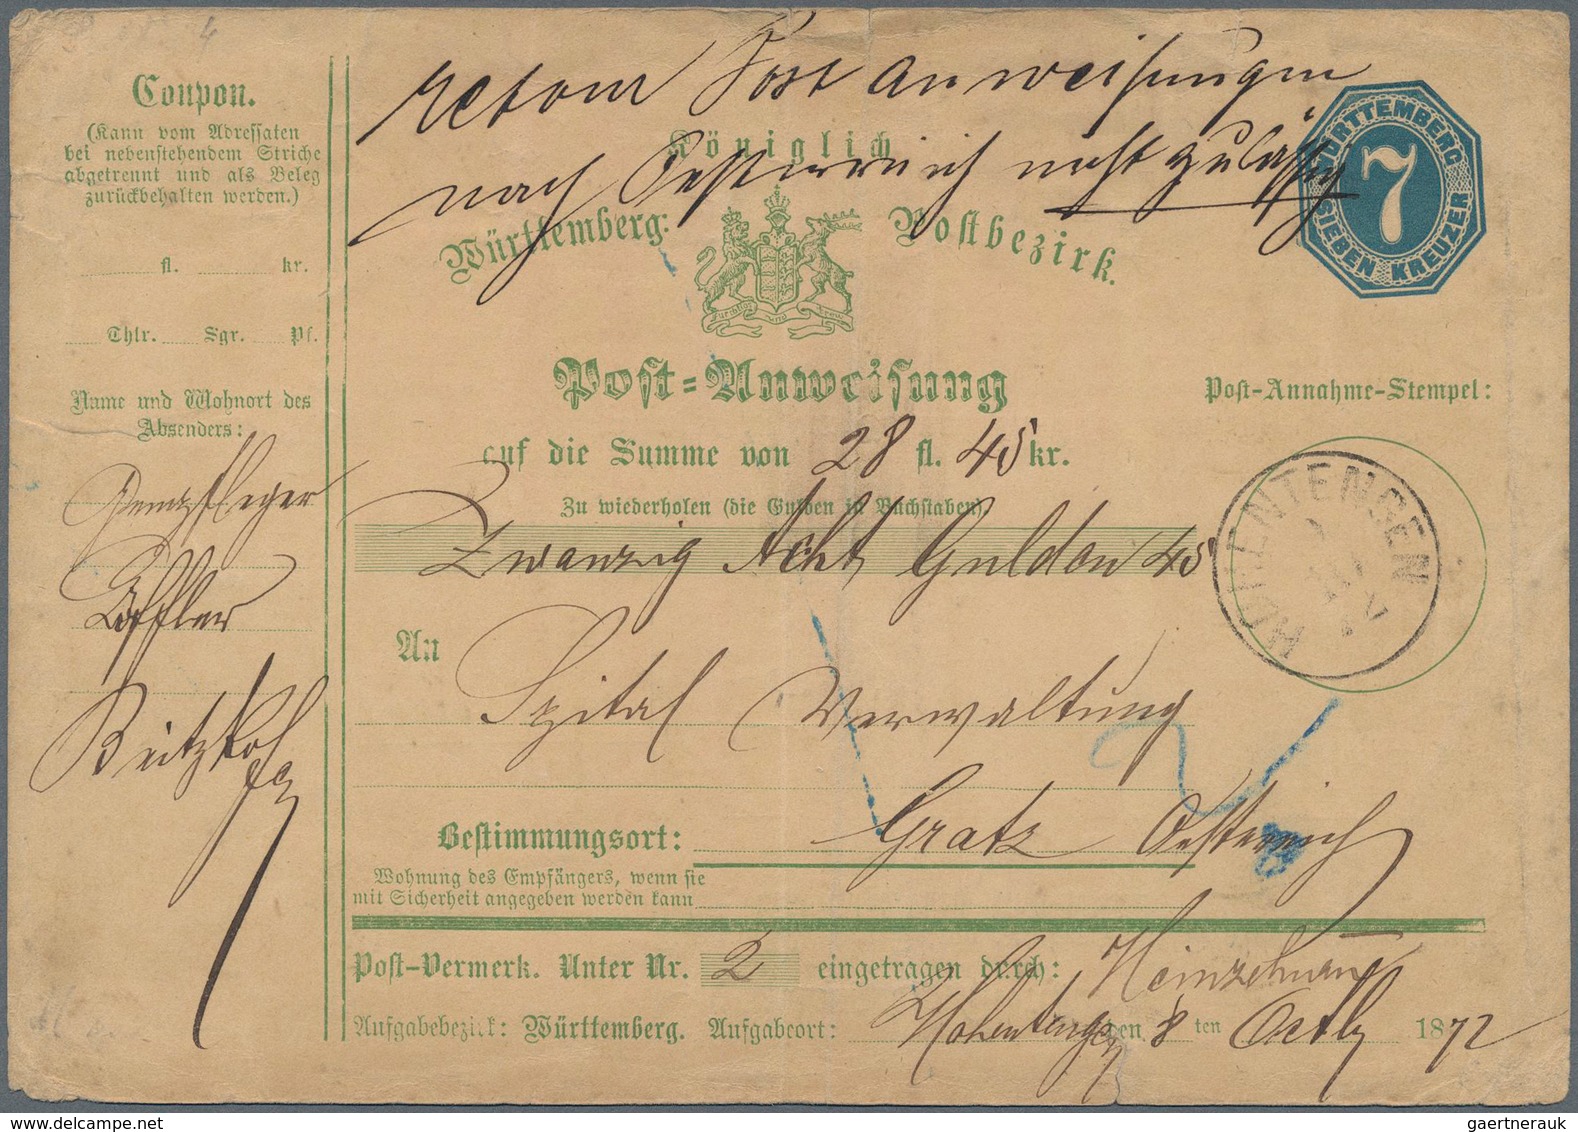 Coupon.
(Kann vom Adressaten
bei nebenstehendem Striche
abgetrennt und als Beleg
zurückbehalten werden.)
fl. kr.
Thlr. Sgr. Pf.
Name und Wohnort des
Absenders:
Löffler
retour Post Anweisungen
nach Oesterreich nicht zulässig
Königlich
Württemberg: Postbezirk.
Furchtlos und trew
WÜRTTEMBERG
7
SIEBEN KREUZER
Post=Anweisung
auf die Summe von 28 fl. 45 kr.
Zu wiederholen (die Gulden in Buchstaben)
Zwanzig Acht Gulden 45
Post-Annahme-Stempel:
HOHENTENGEN
An
Spital Verwaltung
Bestimmungsort: Gratz Oesterreich
Wohnung des Empfängers, wenn sie
mit Sicherheit angegeben werden kann
Post-Vermerk. Unter Nr. 2 eingetragen durch:
Aufgabebezirk: Württemberg. Aufgabeort: Hohentengen den 8 ten Octb 1872
gaertnerauk